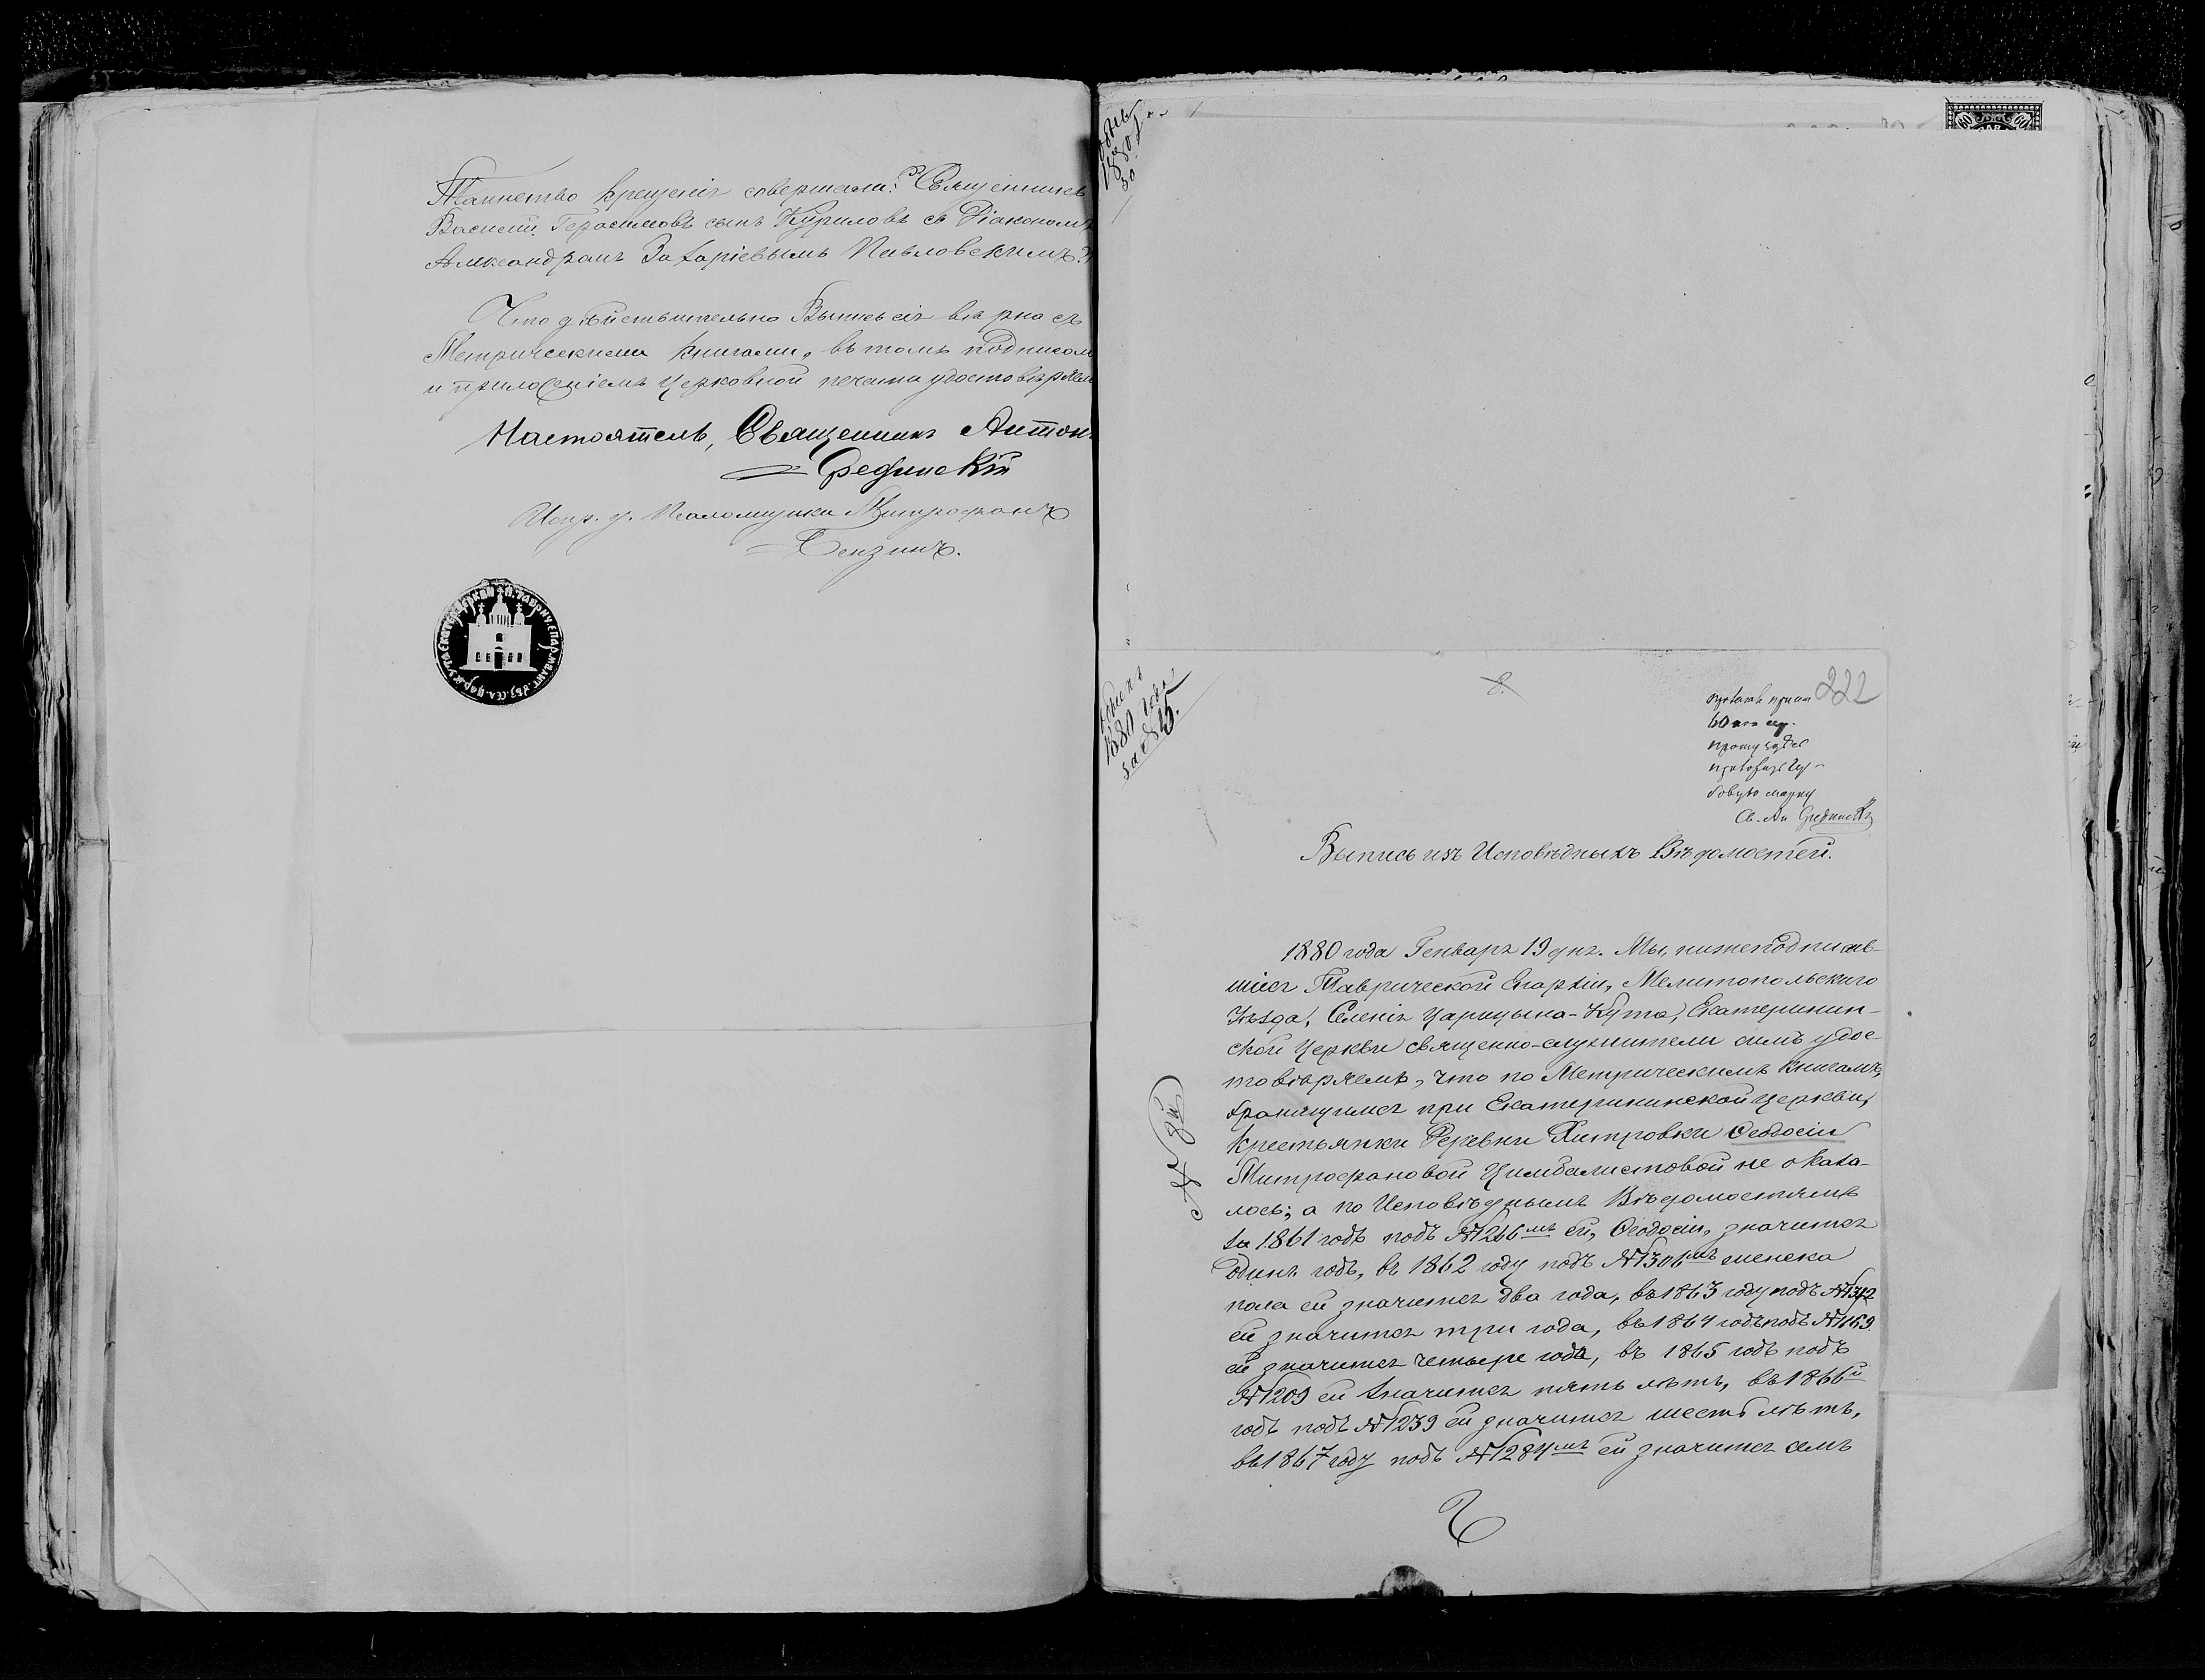 Таинство Крещенія совершали: Священникъ
Василій Герасимовъ сынъ Куриловъ съ Діакономъ
Александромъ Захаріевымъ Павловскимъ.
Что дѣйствительно Выпись сія вѣрна съ
Метрическими книгами, въ томъ подписомъ
и приложеніемъ Церковной печати удостовѣряемъ
Настоятель, Священникъ Антонъ
Срединскій
Испр. д. Псаломщика Митрофанъ
1880 года
за № 15.
8.
222
60
прошу
марку
Св. Ан Срединскій
Выпись изъ Исповѣдныхъ Вѣдомостей.
1880 года Генваря 19 дня. Мы, нижеподписав-
шіеся Таврической Епархіи, Мелитопольскаго
Уѣзда, Селенія Царицына-Кута, Екатеринин-
ской Церкви священно-служители симъ удос-
товѣряемъ, что по Метрическимъ Книгамъ,
хранящимся при Екатерининской церкви,
крестьянки Деревни Димтровки Ѳеодосіи
Митрофановой Цимбалистовой не оказа-
лось; а по Исповѣднымъ Вѣдомостямъ
за 1861 годъ подъ №1266мъ ей, Ѳеодосіи, значится
одинъ годъ, въ 1862 году подъ №1306мъ женска
пола ей значится два года, въ 1863 году подъ №1312
ей значится три года, въ 1864 годъ подъ №1169
ей значится четыре года, въ 1865 годъ подъ
№1209 ей значится пять лѣтъ, въ 1866й
годъ подъ №1239 ей значится шесть лѣтъ,
въ 1867 году подъ №1284мъ ей значится семь